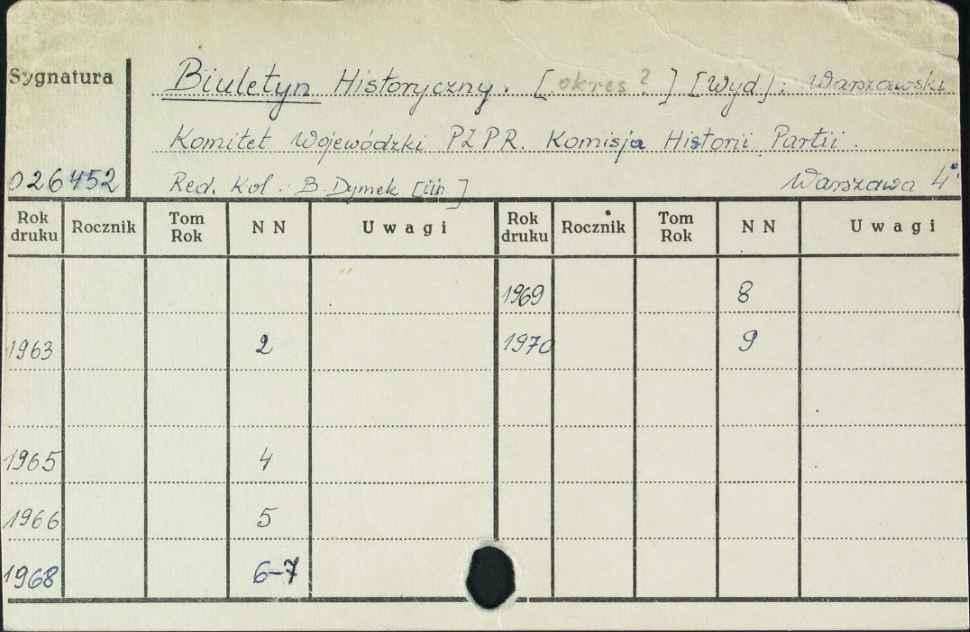 Sygnatura
Biuletyn Historyczny. [okres?] [Wyd]: Warszawski
Komitet Wojewódzki PZPR. Komisja Historii Partii.
026452 Red. Kol.: B. Dymek [iin.] Warszawa 4°
Rok druku Rocznik Tom Rok NN Uwagi Rok druku Rocznik Tom Rok NN Uwagi
1969 8
1963 2 1970 9
1965 4
1966 5
1968 6-7